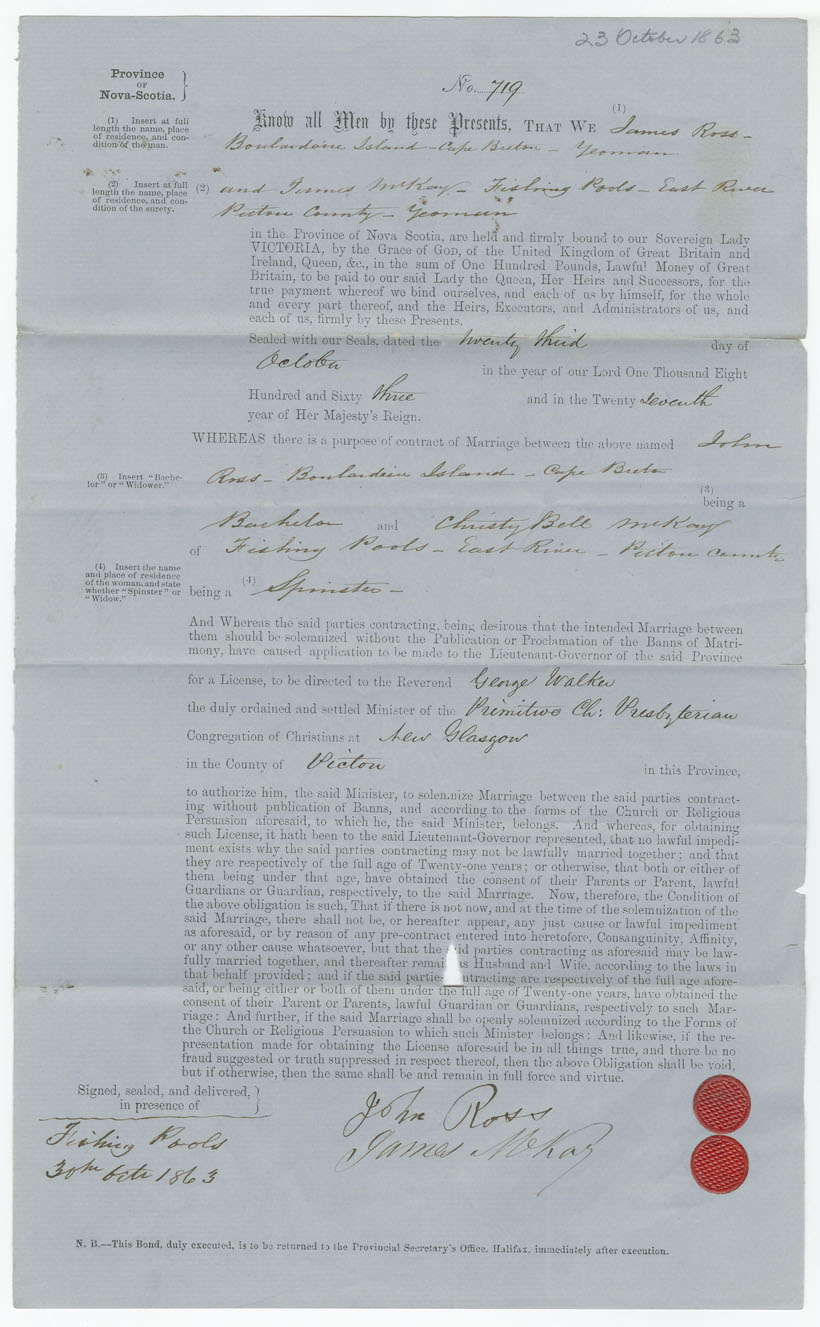 23 October 1863
Province
OF
Nova-Scotia.
No. 719
(1)
Know all Men by these Presents, THAT WE James Ross -
(1) Insert at full
length the name, place
of residence, and con-
dition of the man.
Boulardarie Island - Cape Breton - Yeoman
(2) Insert at full
length the name, place
of residence, and con-
dition of the surety.
(2) and James McKay - Fishing Pools - East River
Pictou County - Yeoman
in the Province of Nova Scotia, are held and firmly bound to our Sovereign Lady
VICTORIA, by the Grace of GOD, of the United Kingdom of Great Britain and
Ireland, Queen, &c., in the sum of One Hundred Pounds, Lawful Money of Great
Britain, to be paid to our said Lady the Queen, Her Heirs and Successors, for the
true payment whereof we bind ourselves, and each of us by himself, for the whole
and every part thereof, and the Heirs, Executors, and Administrators of us, and
each of us, firmly by these Presents.
Sealed with our Seals, dated the twenty third day of
October in the year of our Lord One Thousand Eight
Hundred and Sixty three and in the Twenty seventh
year of Her Majesty's Reign.
WHEREAS there is a purpose of contract of Marriage between the above named John
(3) Insert "Bache-
lor" or "Widower."
Ross - Boulardarie Island - Cape Breton
(3)
being a
Bachelor and Christy Bell McKay
of Fishing Pools - East River - Pictou County
(4) Insert the name
and place of residence
of the woman, and state
whether "Spinster" or
"Widow."
being a (4) Spinster -
And Whereas the said parties contracting, being desirous that the intended Marriage between
them should be solemnized without the Publication or Proclamation of the Banns of Matri-
mony, have caused application to be made to the Lieutenant-Governor of the said Province
for a License, to be directed to the Reverend George Walker
the duly ordained and settled Minister of the Primitive Ch: Presbyterian
Congregation of Christians at New Glasgow
in the County of Pictou in this Province,
to authorize him, the said Minister, to solemnize Marriage between the said parties contract-
ing without publication of Banns, and according to the forms of the Church or Religious
Persuasion aforesaid, to which he, the said Minister, belongs. And whereas, for obtaining
such License, it hath been to the said Lieutenant-Governor represented, that no lawful impedi-
ment exists why the said parties contracting may not be lawfully married together; and that
they are respectively of the full age of Twenty-one years; or otherwise, that both or either of
them being under that age, have obtained the consent of their Parents or Parent, lawful
Guardians or Guardian, respectively, to the said Marriage. Now, therefore, the Condition of
the above obligation is such, That if there is not now, and at the time of the solemnization of the
said Marriage, there shall not be, or hereafter appear, any just cause or lawful impediment
as aforesaid, or by reason of any pre-contract entered into heretofore, Consanguinity, Affinity,
or any other cause whatsoever, but that the said parties contracting as aforesaid may be law-
fully married together, and thereafter remain as Husband and Wife, according to the laws in
that behalf provided; and if the said parties contracting are respectively of the full age afore-
said, or being either or both of them under the full age of Twenty-one years, have obtained the
consent of their Parent or Parents, lawful Guardian or Guardians, respectively to such Mar-
riage: And further, if the said Marriage shall be openly solemnized according to the Forms of
the Church or Religious Persuasion to which such Minister belongs: And likewise, if the re-
presentation made for obtaining the License aforesaid be in all things true, and there be no
fraud suggested or truth suppressed in respect thereof, then the above Obligation shall be void,
but if otherwise, then the same shall be and remain in full force and virtue.
Signed, sealed, and delivered,
in presence of
John Ross
James McKay
Fishing Pools
30th Octr 1863
N. B.—This Bond, duly executed, is to be returned to the Provincial Secretary's Office, Halifax, immediately after execution.